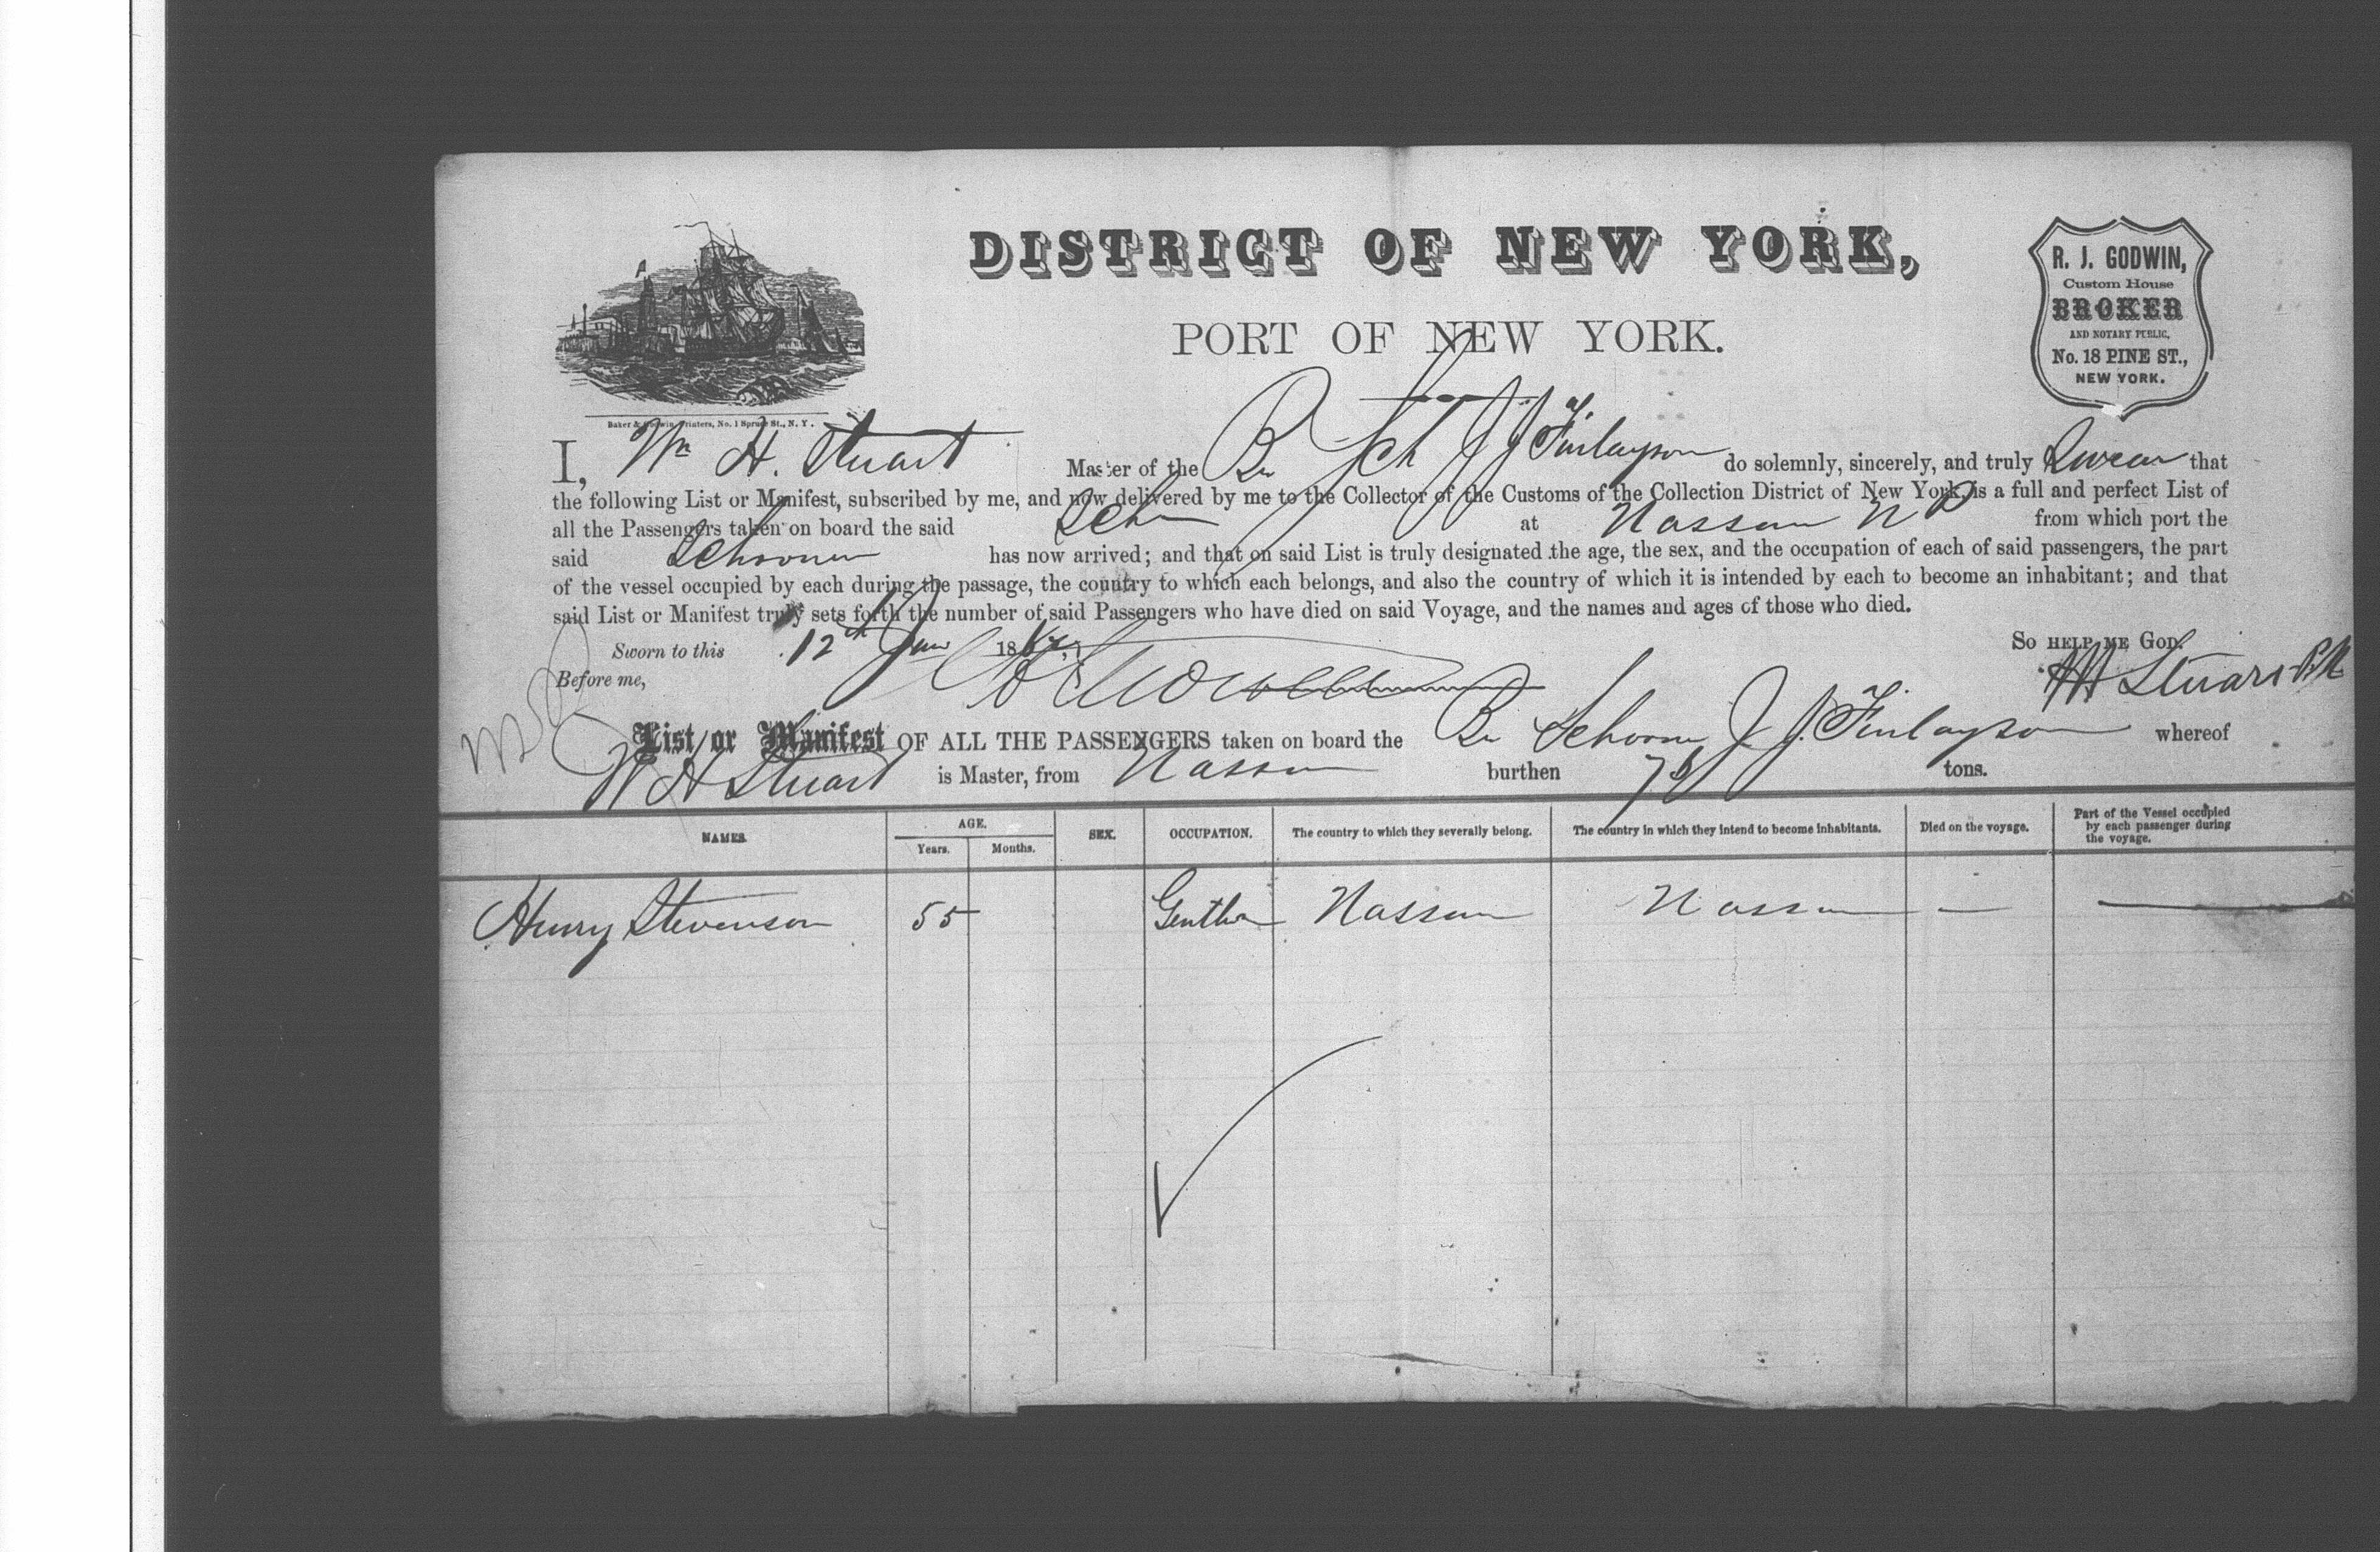 DISTRICT OF NEW YORK,
PORT OF NEW YORK.
R. J. GODWIN,
Custom House
BROKER
AND NOTARY PUBLIC,
No. 18 PINE ST.,
NEW YORK.
Baker & Godwin, Printers, No. 1 Spruce St., N. Y.
I, Wm H. Stuart Master of the Br Sch J J Finlayson do solemnly, sincerely, and truly Swear that
the following List or Manifest, subscribed by me, and now delivered by me to the Collector of the Customs of the Collection District of New York, is a full and perfect List of
all the Passengers taken on board the said Schr at Nassau N P from which port the
said Schooner has now arrived; and that on said List is truly designated the age, the sex, and the occupation of each of said passengers, the part
of the vessel occupied by each during the passage, the country to which each belongs, and also the country of which it is intended by each to become an inhabitant; and that
said List or Manifest truly sets forth the number of said Passengers who have died on said Voyage, and the names and ages of those who died.
So HELP ME GOD.
Sworn to this 12th 18
Before me,
W H Stuart
List or Manifest OF ALL THE PASSENGERS taken on board the Br Schooner J J. Finlayson whereof
W H Stuart is Master, from Nassau burthen tons.
NAMES. AGE. SEX. OCCUPATION. The country to which they severally belong. The country in which they intend to become inhabitants. Died on the voyage. Part of the Vessel occupied by each passenger during the voyage.
Years. Months.
Henry Stevenson 55 Nassau Nassau —